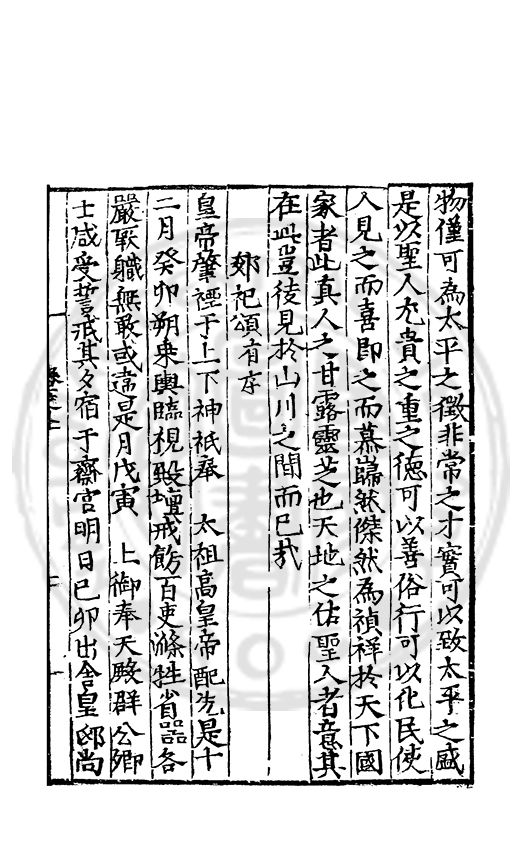 物僅可為太平之徵非常之才寳可以致太平之盛
是以聖人尤貴之重之德可以善俗行可以化民使
人見之而喜即之而慕歸然傑然為禎祥於天下國
家者此真人之甘露靈芝也天地之佑聖人者意其
在此豈徒見於山川之間而已哉
郊祀頌有序
皇帝肇禋于上下神祇奉 太祖高皇帝配先是十
二月癸卯朔乗輿臨視毁壇戒飭百吏滌牲省器各
嚴厥職無敢或違是月戊寅 上御奉天殿群公卿
士咸受誓戒其夕宿于齋宮明日己卯出舍皇邸尚